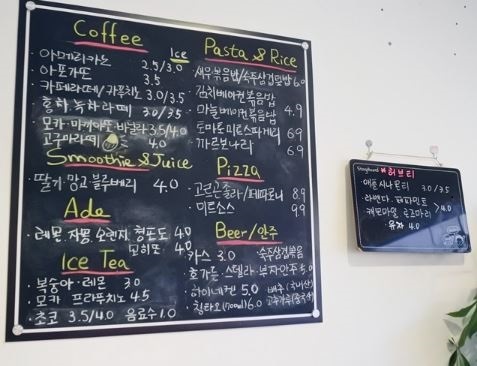 Coffee
Ice
아메리카노 2.5/3.0
아포가또 3.5
카페라떼/카푸치노 3.0/3.5
홍차, 녹차라떼 3.0/3.5
모카·마끼아또·바닐라 3.5/4.0
고구마라떼 4.0
Smoothie & Juice
딸기, 망고, 블루베리 4.0
Ade
레몬, 자몽, 오렌지, 청포도 4.0
모히또 4.0
Ice Tea
복숭아·레몬 3.0
모카 프라푸치노 4.5
초코 3.5/4.0 음료수 1.0
Pasta & Rice
새우볶음밥/숙주삼겹덮밥 6.0
김치베이컨볶음밥
마늘베이컨볶음밥 4.9
토마토미트스파게티 6.9
까르보나라 6.9
Pizza
고르곤졸라/페퍼로니 8.9
미트소스 9.9
Beer/안주
카스 3.0 숙주삼겹볶음
호가든·스텔라·부자안주 5.0
하이네켄 5.0 배추(국내산)
칭타오 6.0 고추가루(중국산)
허브티
애플시나몬티 3.0/3.5
라벤다·페파민트
캐모마일 로즈마리 >4.0
유자 4.0